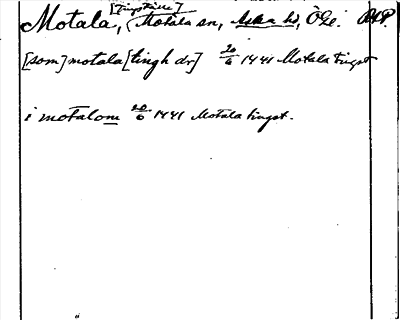 [tingställe]
Motala, (Motala sn, Aska hd, Ögl. RAP.
[som] motala [tingh dr] 20/6 1441 Motala tingst
i motalom 20/6 1441 Motala tingst.